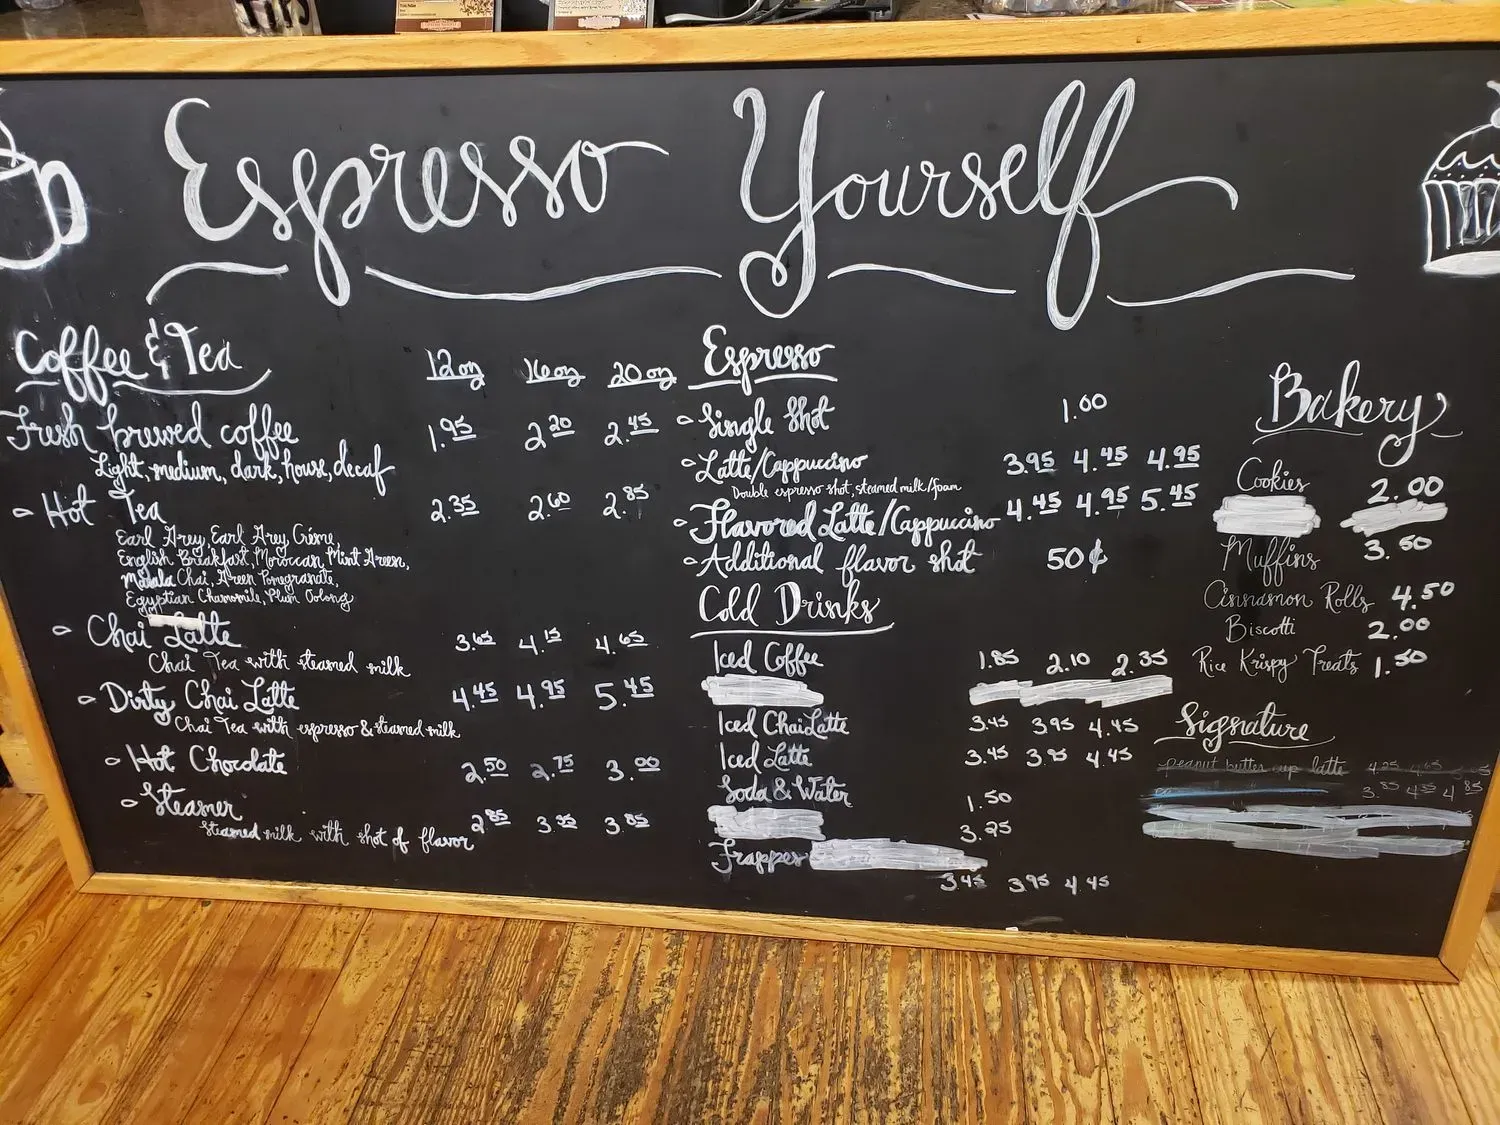 Espresso Yourself
Coffee & Tea
12 oz 16 oz 20 oz
Fresh brewed coffee 1.95 2.20 2.45
Light, medium, dark, house, decaf
Hot Tea 2.35 2.60 2.85
Earl Grey, Earl Grey Créme,
English Breakfast, Moroccan Mint Green,
Masala Chai, Green Pomegranate,
Egyptian Chamomile, Plum Oolong
Chai Latte 3.65 4.15 4.65
Chai Tea with steamed milk
Dirty Chai Latte 4.45 4.95 5.45
Chai Tea with espresso & steamed milk
Hot Chocolate 2.50 2.75 3.00
Steamer 2.85 3.35 3.85
Steamed milk with shot of flavor
Espresso
Single Shot 1.00
Latte/Cappuccino 3.95 4.45 4.95
Double espresso shot, steamed milk/foam
Flavored Latte/Cappuccino 4.45 4.95 5.45
Additional flavor shot 50¢
Cold Drinks
Iced Coffee 1.85 2.10 2.35
Iced Chai Latte 3.45 3.95 4.45
Iced Latte 3.45 3.95 4.45
Soda & Water 1.50
3.25
Frappes
3.45 3.95 4.45
Bakery
Cookies 2.00
Muffins 3.50
Cinnamon Rolls 4.50
Biscotti 2.00
Rice Krispy Treats 1.50
Signature
peanut butter cup latte